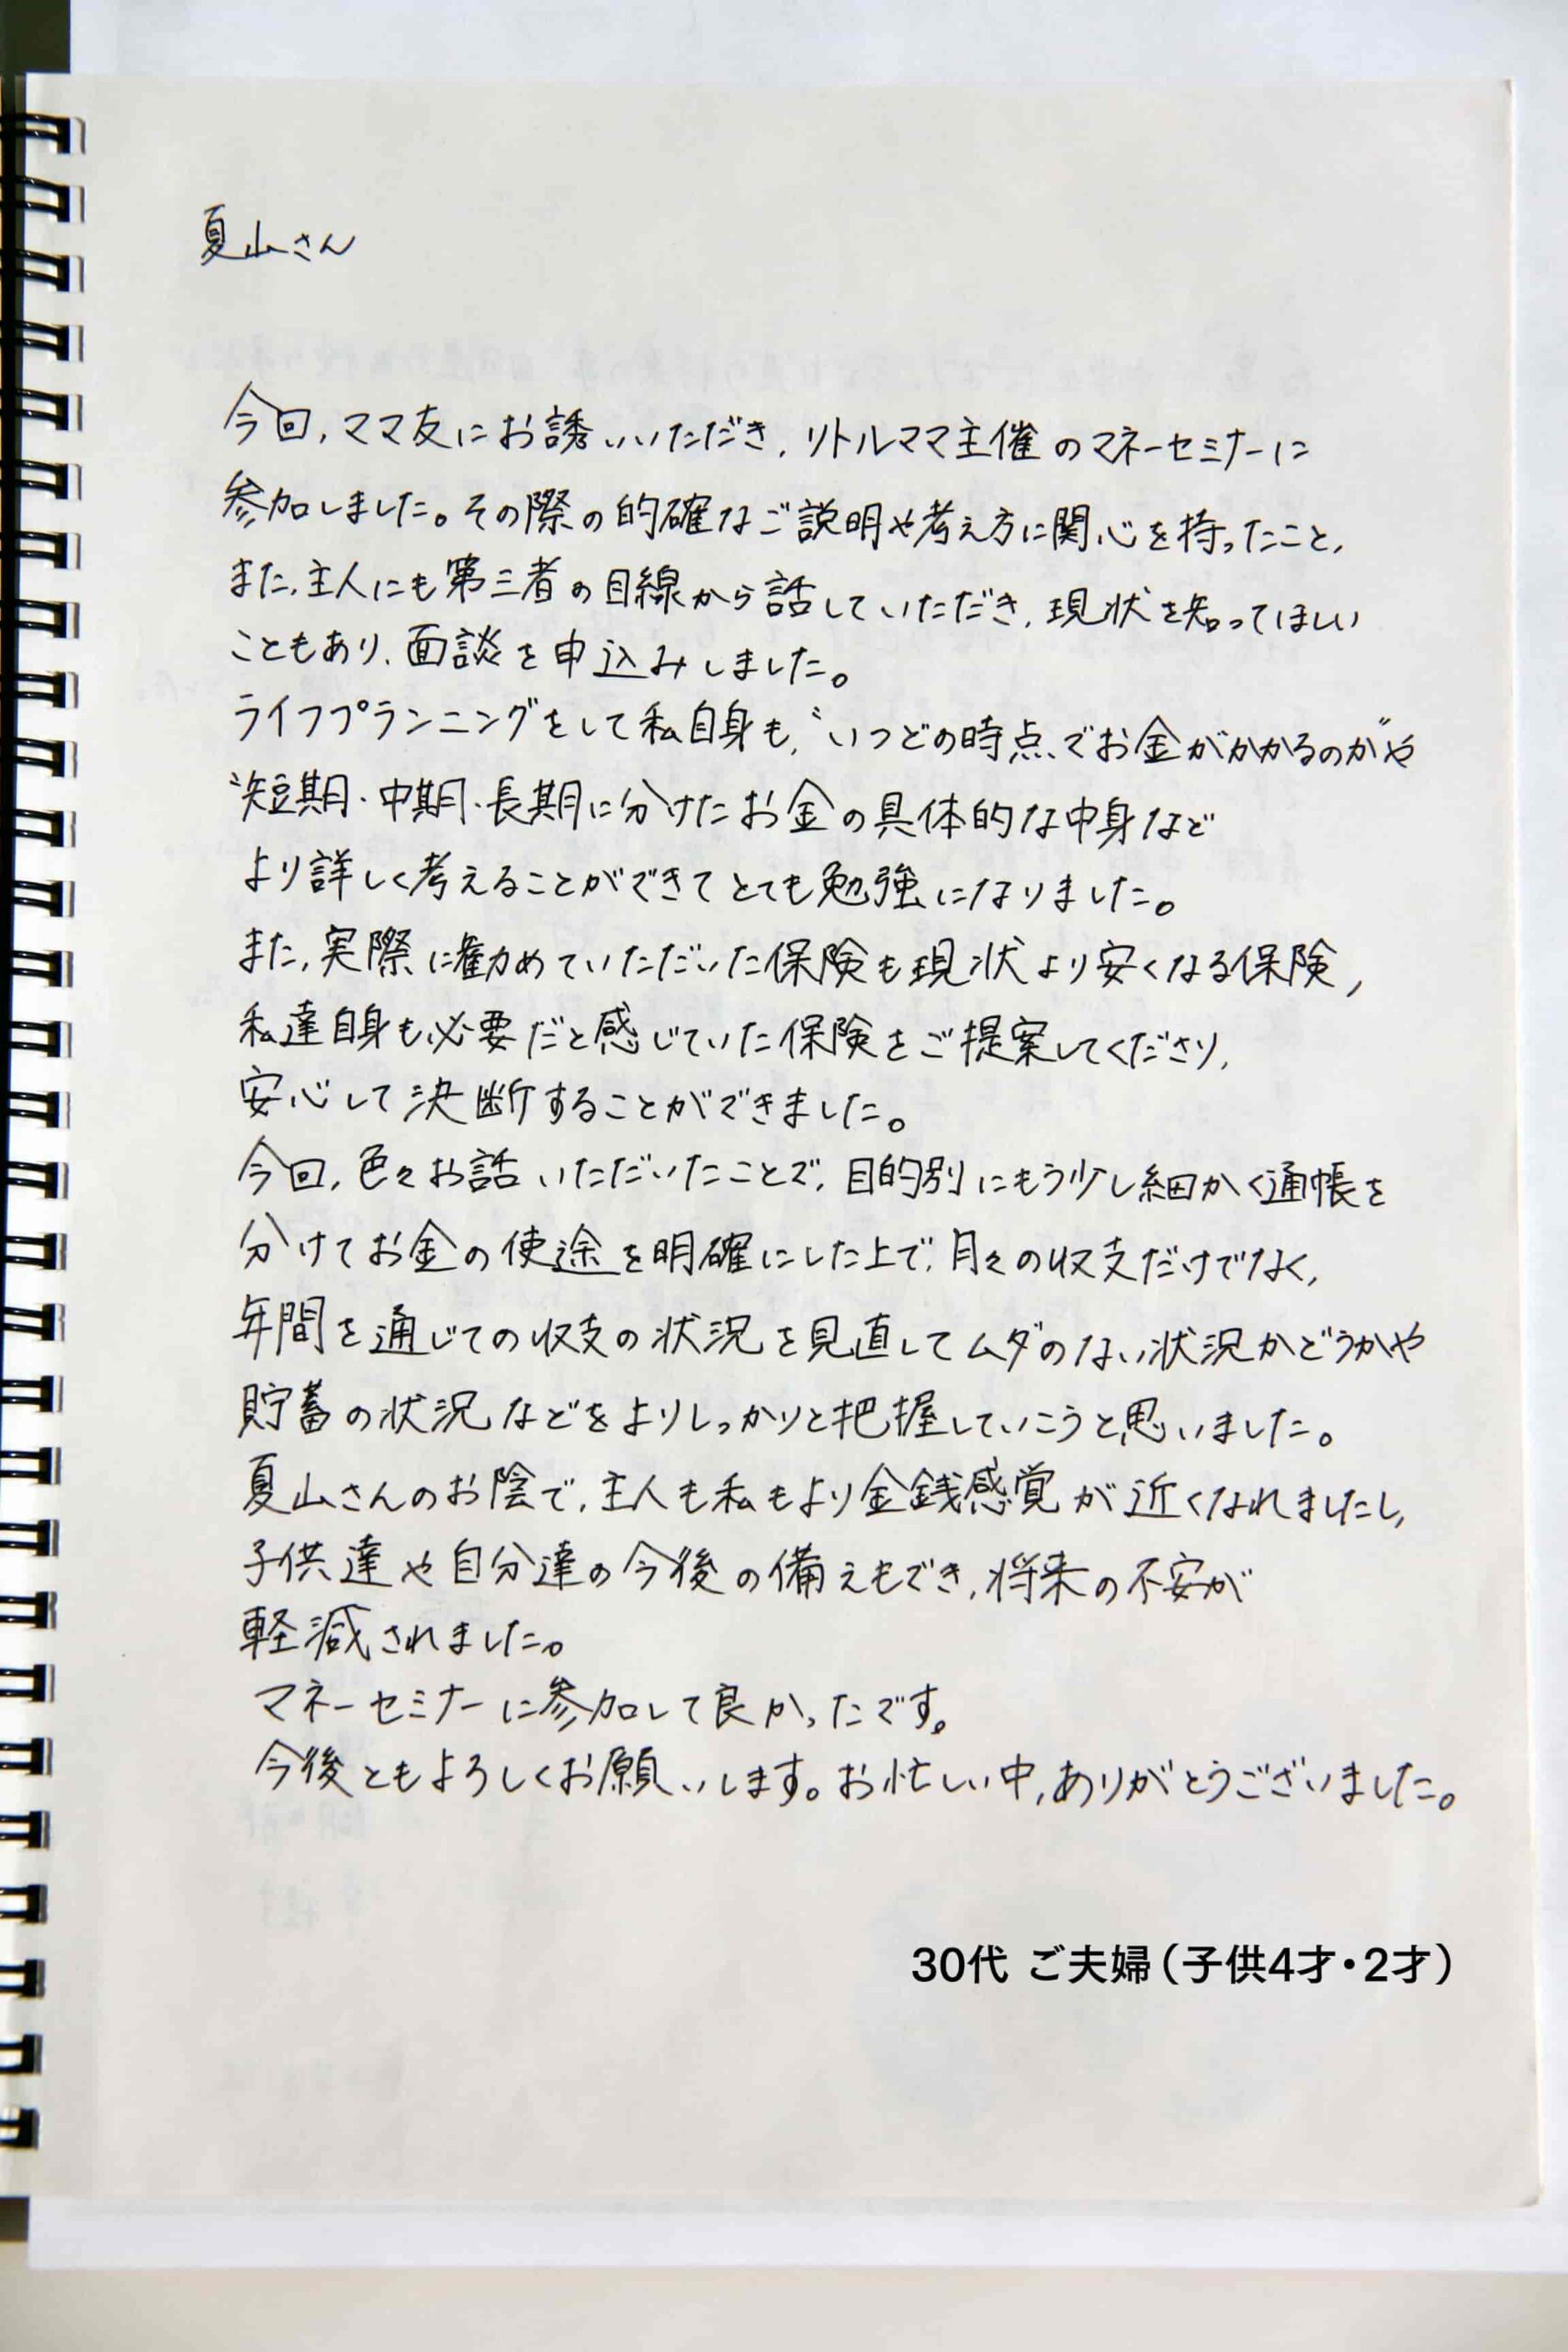 夏山さん
今回、ママ友にお誘いいただき、リトルママ主催のマネーセミナーに
参加しました。その際の的確なご説明や考え方に関心を持ったこと、
また、主人にも第三者の目線から話していただき、現状を知ってほしい
こともあり、面談を申込みしました。
ライフプランニングをして私自身も、〝いつどの時点でお金がかかるのか〟や
〝短期・中期・長期に分けたお金の具体的な中身など
より詳しく考えることができてとても勉強になりました。
また、実際に勧めていただいた保険も現状より安くなる保険、
私達自身も必要だと感じていた保険をご提案してくださり、
安心して決断することができました。
今回、色々お話いただいたことで、目的別にもう少し細かく通帳を
分けてお金の使途を明確にした上で、月々の収支だけでなく、
年間を通じての収支の状況を見直してムダのない状況かどうかや
貯蓄の状況などをよりしっかりと把握していこうと思いました。
夏山さんのお陰で、主人も私もより金銭感覚が近くなれましたし、
子供達や自分達の今後の備えもでき、将来の不安が
軽減されました。
マネーセミナーに参加して良かったです。
今後ともよろしくお願いします。お忙しい中、ありがとうございました。
30代 ご夫婦（子供4才・2才）